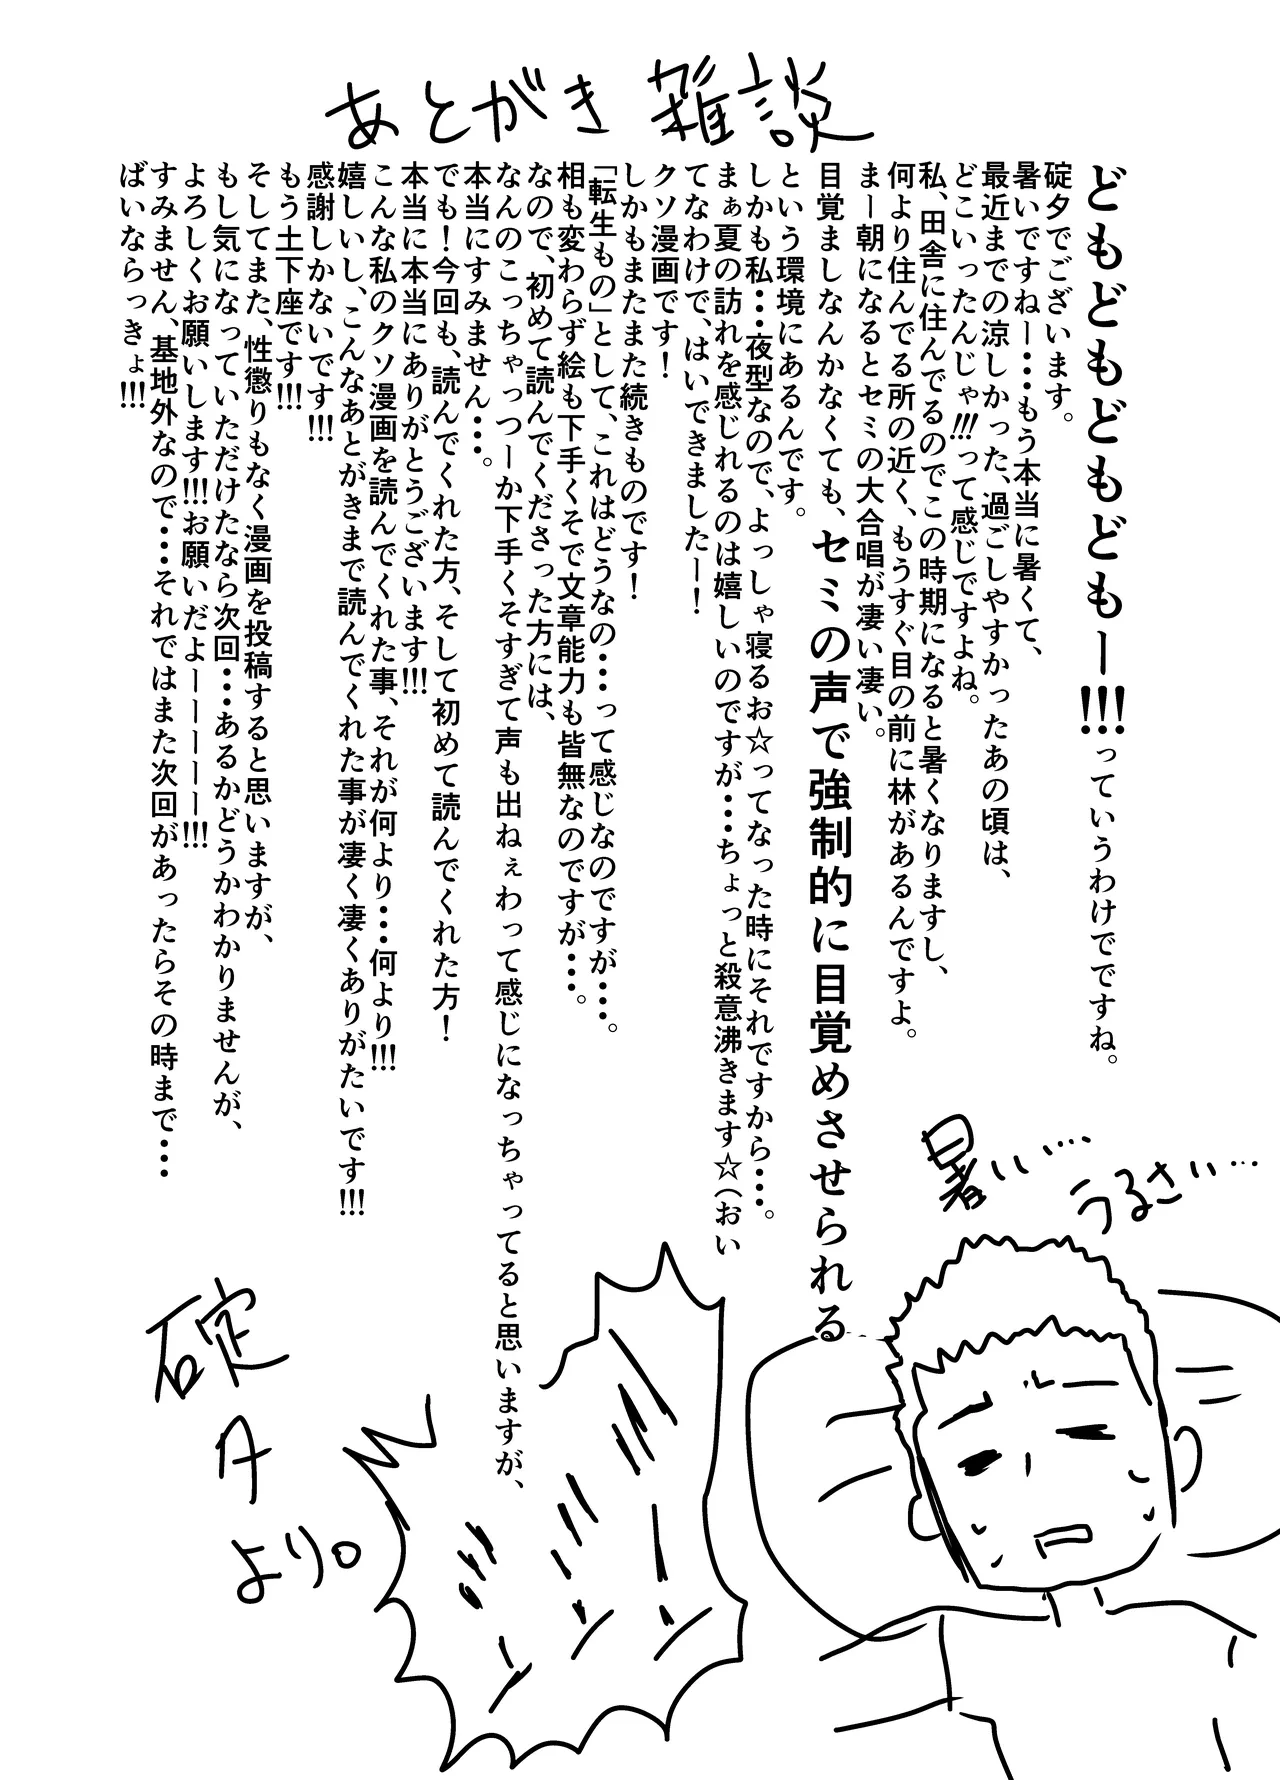 あとがき 雑談
どもどもどもどもー!!!っていうわけでですね。
碇夕でございます。
暑いですねー・・・もう本当に暑くて、
最近までの涼しかった、過ごしやすかったあの頃は、
どこいったんじゃ!!!って感じですよね。
私、田舎に住んでるのでこの時期になると暑くなりますし、
何より住んでる所の近く、もうすぐ目の前に林があるんですよ。
まー朝になるとセミの大合唱が凄い凄い。
目覚ましなんかなくても、セミの声で強制的に目覚めさせられる
という環境にあるんです。
しかも私・・・夜型なので、よっしゃ寝るお☆ってなった時にそれですから・・・。
まぁ夏の訪れを感じれるのは嬉しいのですが・・・ちょっと殺意沸きます☆(おい
てなわけで、はいできましたー!
クソ漫画です!
しかもまたまた続きものです!
「転生もの」として、これはどうなの・・・って感じなのですが・・・。
相も変わらず絵も下手くそで文章能力も皆無なのですが・・・。
なので、初めて読んでくださった方には、
なんのこっちゃっつーか下手くそすぎて声も出ねぇわって感じになっちゃってると思いますが、
本当にすみません・・・。
でも!今回も、読んでくれた方、そして初めて読んでくれた方!
本当に本当にありがとうございます!!!
こんな私のクソ漫画を読んでくれた事、それが何より・・・何より!!!
嬉しいし、こんなあとがきまで読んでくれた事が凄く凄くありがたいです!!!
感謝しかないです!!!
もう土下座です!!!
そしてまた、性懲りもなく漫画を投稿すると思いますが、
もし気になっていただけたなら次回・・・あるかどうかわかりませんが、
よろしくお願いします!!!お願いだよーーーーー!!!
すみません、基地外なので・・・それではまた次回があったらその時まで・・・
ばいならっきょ!!!
暑いい…
うるさいい…
ミーンミーン
碇夕より。